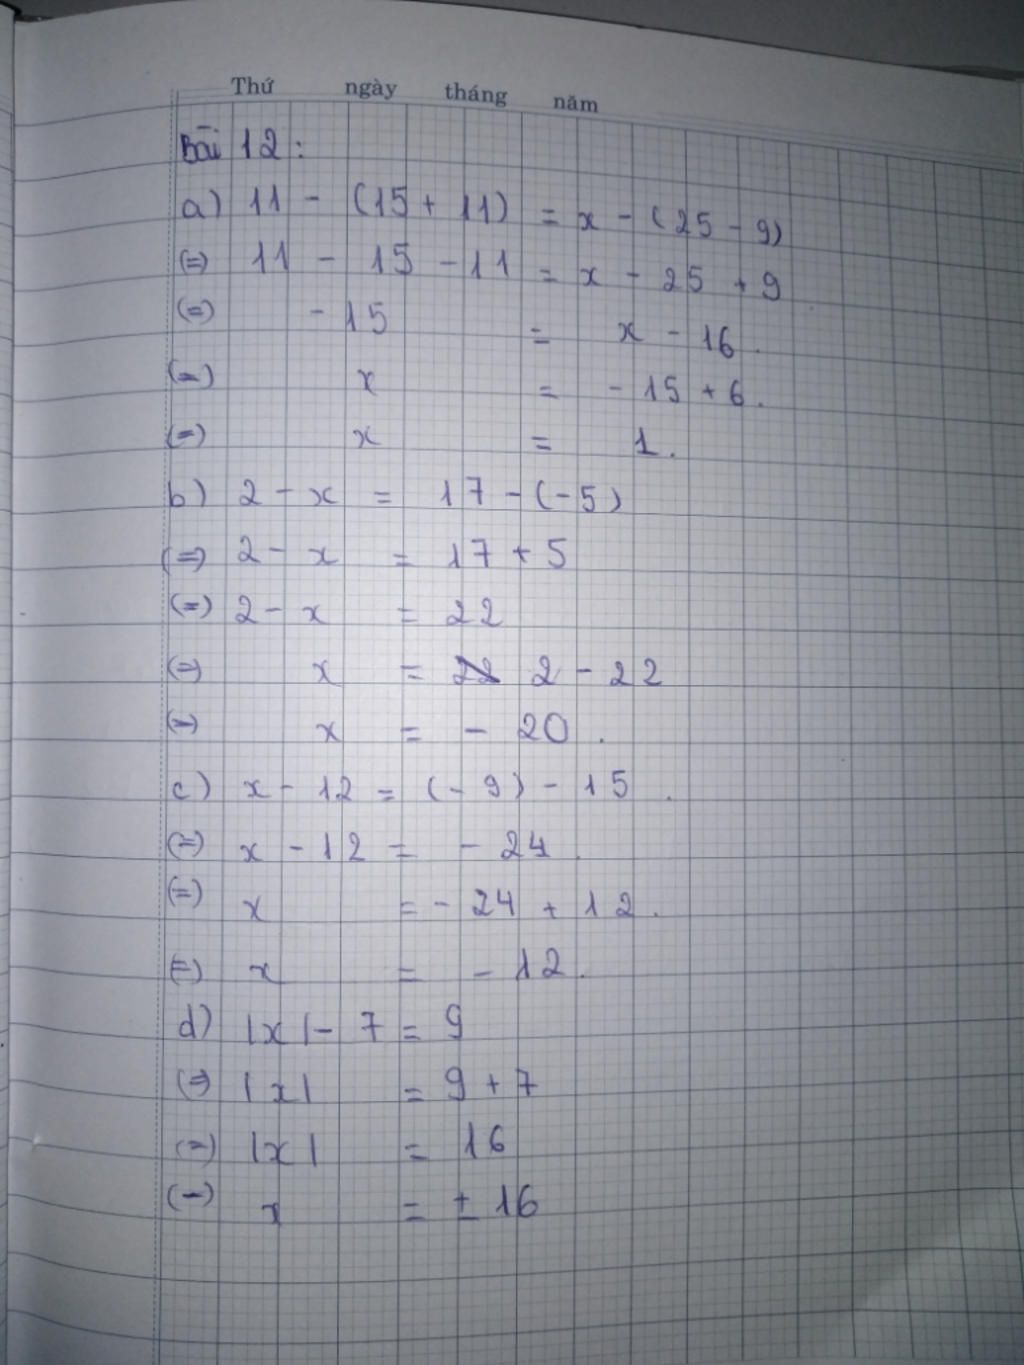 Thứ ngày tháng năm
Bài 12:
a) 11 - (15 + 11) = x - (25 - 9)
(=) 11 - 15 - 11 = x - 25 + 9
(=) - 15 = x - 16.
(=) x = - 15 + 6.
(=) x = 1.
b) 2 - x = 17 - (-5)
(=) 2 - x = 17 + 5
(=) 2 - x = 22
(=) x = 2 - 22
(=) x = - 20.
c) x - 12 = (- 9) - 15.
(=) x - 12 = - 24.
(=) x = - 24 + 12.
(=) x = - 12.
d) |x| - 7 = 9
(=) |x| = 9 + 7
(=) |x| = 16
(=) x = ± 16